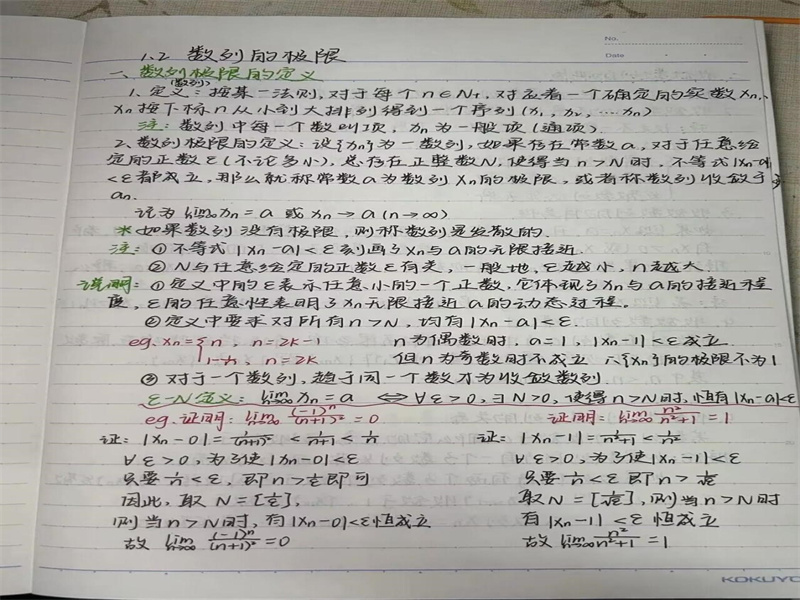 No.
Date
1.2 数列的极限
一、数列极限的定义
(数列)
1. 定义：按某一法则，对于每个n∈N+，对应着一个确定的实数xn，
xn按下标n从小到大排列得到一个序列(x1，x2，…xn)
注：数列中每一个数叫项，xn为一般项(通项)
2. 数列极限的定义：设{xn}为一数列，如果存在常数a，对于任意给
定的正数ε(不论多小)，总存在正整数N，使得当n>N时，不等式|xn-a|
<ε都成立，那么就称常数a为数列xn的极限，或者称数列收敛于
an.
记为 lim n→∞ xn=a 或 xn→a(n→∞)
※如果数列没有极限，则称数列是发散的.
注：①不等式|xn-a|<ε刻画了xn与a的无限接近.
②N与任意给定的正数ε有关，一般地，ε越小，n越大.
说明：①定义中的ε表示任意小的一个正数，它体现了xn与a的接近程
度，ε的任意性表明了xn无限接近a的动态过程.
②定义中要求对所有n>N，均有|xn-a|<ε.
eg. xn={n n=2k-1 n为偶数时，a=1，|xn-1|<ε成立
1-1/n n=2k 但n为奇数时不成立 ∴{xn}的极限不为1
③对于一个数列，趋于同一个数才为收敛数列.
ε-N定义：lim n→∞ xn=a ⇔∀ε>0，∃N>0，使得n>N时，恒有|xn-a|<ε
eg. 证明：lim n→∞ (-1)^n/(n+1)²=0 证明：lim n→∞ n²/n²+1=1
证：|xn-0|=1/(n+1)²<1/n+1<1/n 证：|xn-1|=1/n²+1<1/n²
∀ε>0，为了使|xn-0|<ε ∀ε>0，为了使|xn-1|<ε
只要1/n<ε，即n>1/ε即可 只要1/n²<ε 即n>1/√ε
因此，取N=[1/ε]， 取N=[1/√ε]，则当n>N时
则当n>N时，有|xn-0|<ε恒成立 有|xn-1|<ε恒成立
故 lim n→∞ (-1)^n/(n+1)²=0 故 lim n→∞ n²/n²+1=1
KOKUYO